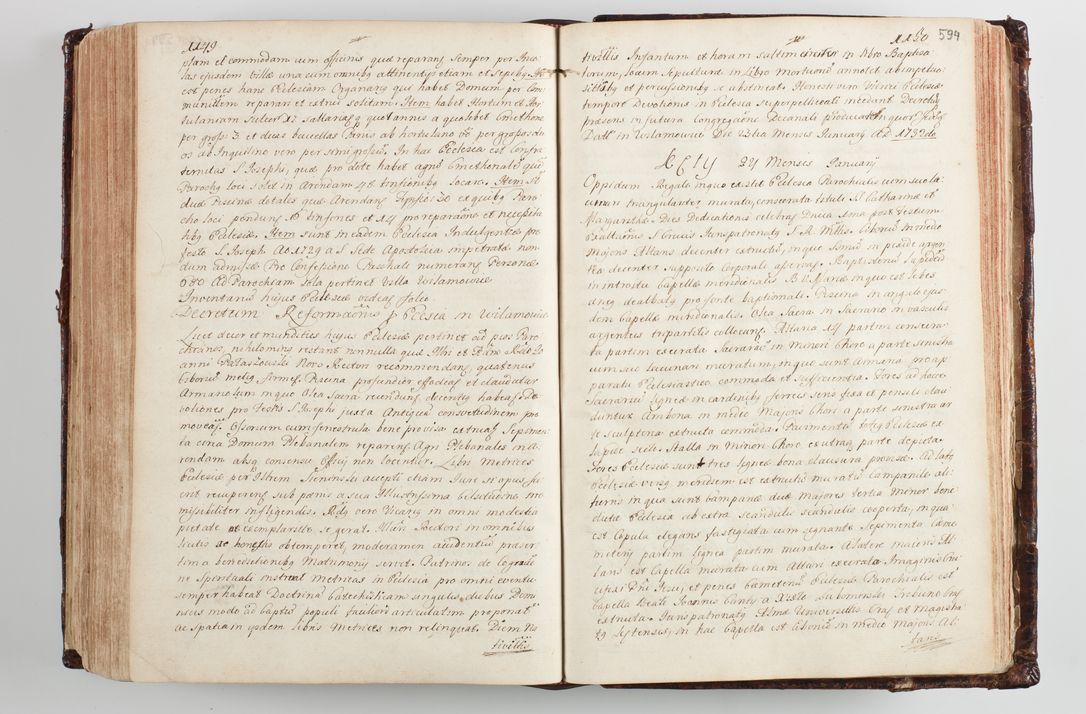 1149
ptam et commodam cum officinis quæ reparanț semper per Inco-
las ejusdem villæ una cum omnibꝰ attinentiis etiam et sepibꝰ.
est penes hanc Ecclesiam Organarius qui habet Domum per Com-
munitatem reparari et extrui solitam. Item habet Hortum et Hor-
tulaniam
per grossos 3. et duas bucellas Panis ab hortulano vero per grossos du-
os ab Inquilino vero per semigrossum. In hac Ecclesia est Confra-
ternitas S. Josephi, quæ pro dote habet agrum Cmethonalem quem
Parochus loci solet in Arendam 48 tinfonibus locare. Item sunt
duæ Piscinæ dotales quæ Arendantur 30 ex quibus Paro-
cho loci penduntur 16 tinfones et 14 pro reparatione et necessita-
tibus Ecclesiæ. Item sunt in eadem Ecclesia Indulgentiæ pro
festo S. Joseph Ao 1729 a S. Sede Apostolica impetratæ non-
dum admissæ. Pro Confessione Paschali numerantur Personæ
680. Ad Parochiam sola pertinet Villa Wilamowice
Inventarium hujus Ecclesiæ videas folio
Decretum Reformationis pro Ecclesia in Wilamowice
Licet decor et mundities hujus Ecclesiæ pertinet ad pios Paro-
chianos, nihilominus restant nonnulla quæ
anni Pałaszowski Novo Rectori recommendantur, quatenus
Ciborium melius firmetur. Piscina profundior effodiatur et claudatur
Armariolum in quo Olea sacra reconduntur decentius habeatur. De-
votiones pro Festo S. Josephi juxta Antiquam consuetudinem pro-
moveantur. Ossorium cum fenestrula bene provisa extruatur. Sepimen-
ta circa Domum Plebanalem reparentur. Agri Plebanales in A-
rendam absque consensu Officii non locentur. Libri Metrices
Ecclesiæ per Illrem Sienenski accepti etiam Jure si opus fu-
erit recuperentur sub pœnis a sua Illustrissima Celsitudine
missibiliter infligendis. Rndus vero Vicarius in omni modestia
pietate et exemplaritate se gerat. Illmi Rectori in omnibus
licitis ac honestis obtemperet, moderamen audientium præser-
tim a benedictionibus Matrimonii servet. Patrinos de Cogna-
ne Spirituali instruat metricas in Ecclesia pro omni eventu
semper habeat Doctrinam Catechisticam singulis diebus Domi-
nicis modo ad captum populi faciliori articulatim præponat
ac spatia in iisdem libris Metrices non relinquat. Diem Na-
tivitatis
1150
594
tivitatis Infantum et horam saltem circiter in libro Baptisa-
torum, locum sepulturæ in Libro Mortuorum annotet ab impetuo-
sitatibus et percussionibus se abstineat. Honesti vero Vitrici Ecclesiæ
tempore Devotionis in Ecclesia superpelliceati incedant. Decretum
præsens in futura Congregatione Decanali producatur
Datt. in Wilamowice Die 23tia Mensis January AD 1732do
KĘTY 24 Mensis January
Oppidum Regale in quo extat Ecclesia Parochialis cum
triangulariter murata, consecrata tituli S. Catharinæ et
Margarithæ. Dies Dedicationis celebratur Dnica Ima post Festum
Exaltationis S. Crucis Juris patronatus S. R. Mttis. Ciborium in Medio
Majoris Altaris decenter extructum, in quo Smum in pixide argen-
tea decenter, supposito Corporali asservatur. Baptisterium lapideum
in introitu Capellæ meridionalis B. V. Mariæ in quo est lebes
æneus dealbatus pro fonte baptismali. Piscina in angulo ejus-
dem Capellæ meridionalis. Olea Sacra in Sacrario in vasculis
argenteis tripartitis collocantur. Altaria 14 partim consecra-
ta partim execrata. Sacrarium in minori Choro a parte sinistra
cum suo lacunari muratum, in quo sunt Armaria pro ap-
paratu Ecclesiastico commoda et sufficientia. Fores ad hoc
Sacrarium ligneæ in cardinibus ferreis sera fixa et pensili clau-
duntur. Ambona in medio Majoris Chori a parte sinistra ar-
te sculptoria extructa commoda. Pavimentum totius Ecclesiæ ex
lapide secto. Stalla in minori Choro ex utraque parte depicta.
Fores Ecclesiæ sunt tres ligneæ bona clausura provisæ. Ad latus
Ecclesiæ versus meridiem est extructum muratum Campanile al-
tum in qua sunt campanæ duæ majores tertia minor bene-
dictæ. Ecclesia ab extra scandulis scandulis cooperta, in qua
est Cupula elegans fastigiata cum signante. Sepimenta Cæme-
terii partim lignea partim murata. A latere majoris Al-
taris est Capella murata cum Altari execrata Imaginis Cru-
cifixi Dni Jesu, et penes Cæmeterium Ecclesiæ Parochialis est
Capella Beati Joannis Cantii a Xisto Lubomirski Tribuno
extructa. Juris patronatus Almæ Universitatis Crac. et Magistra-
tus Kętensis, in hac Capella est Ciborium in medio Majoris Al-
taris